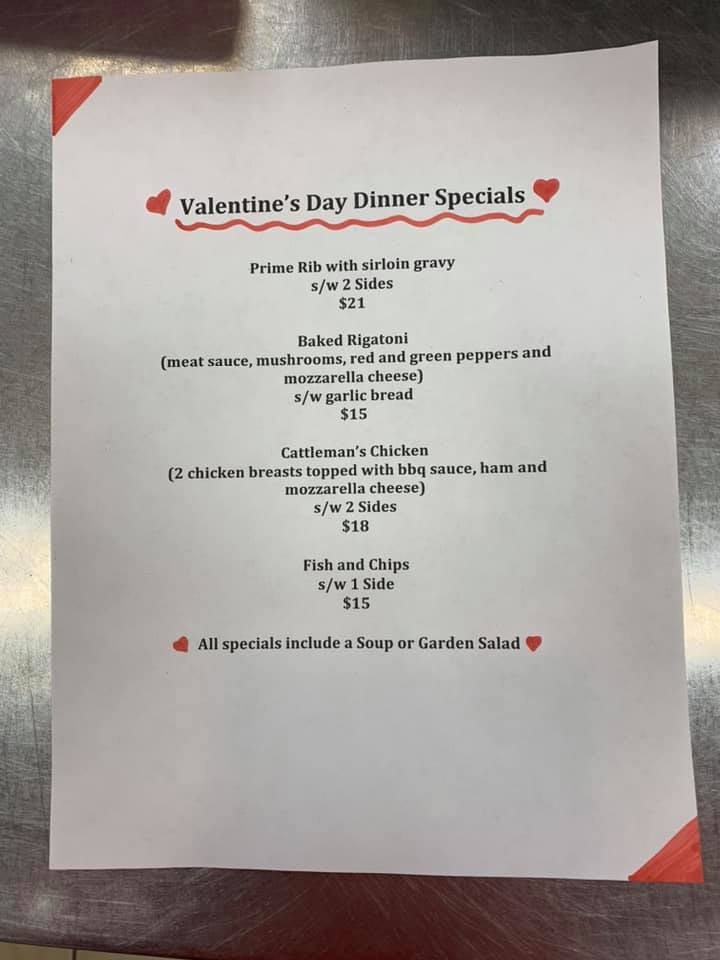 Valentine's Day Dinner Specials
Prime Rib with sirloin gravy
s/w 2 Sides
$21
Baked Rigatoni
(meat sauce, mushrooms, red and green peppers and
mozzarella cheese)
s/w garlic bread
$15
Cattleman's Chicken
(2 chicken breasts topped with bbq sauce, ham and
mozzarella cheese)
s/w 2 Sides
$18
Fish and Chips
s/w 1 Side
$15
All specials include a Soup or Garden Salad